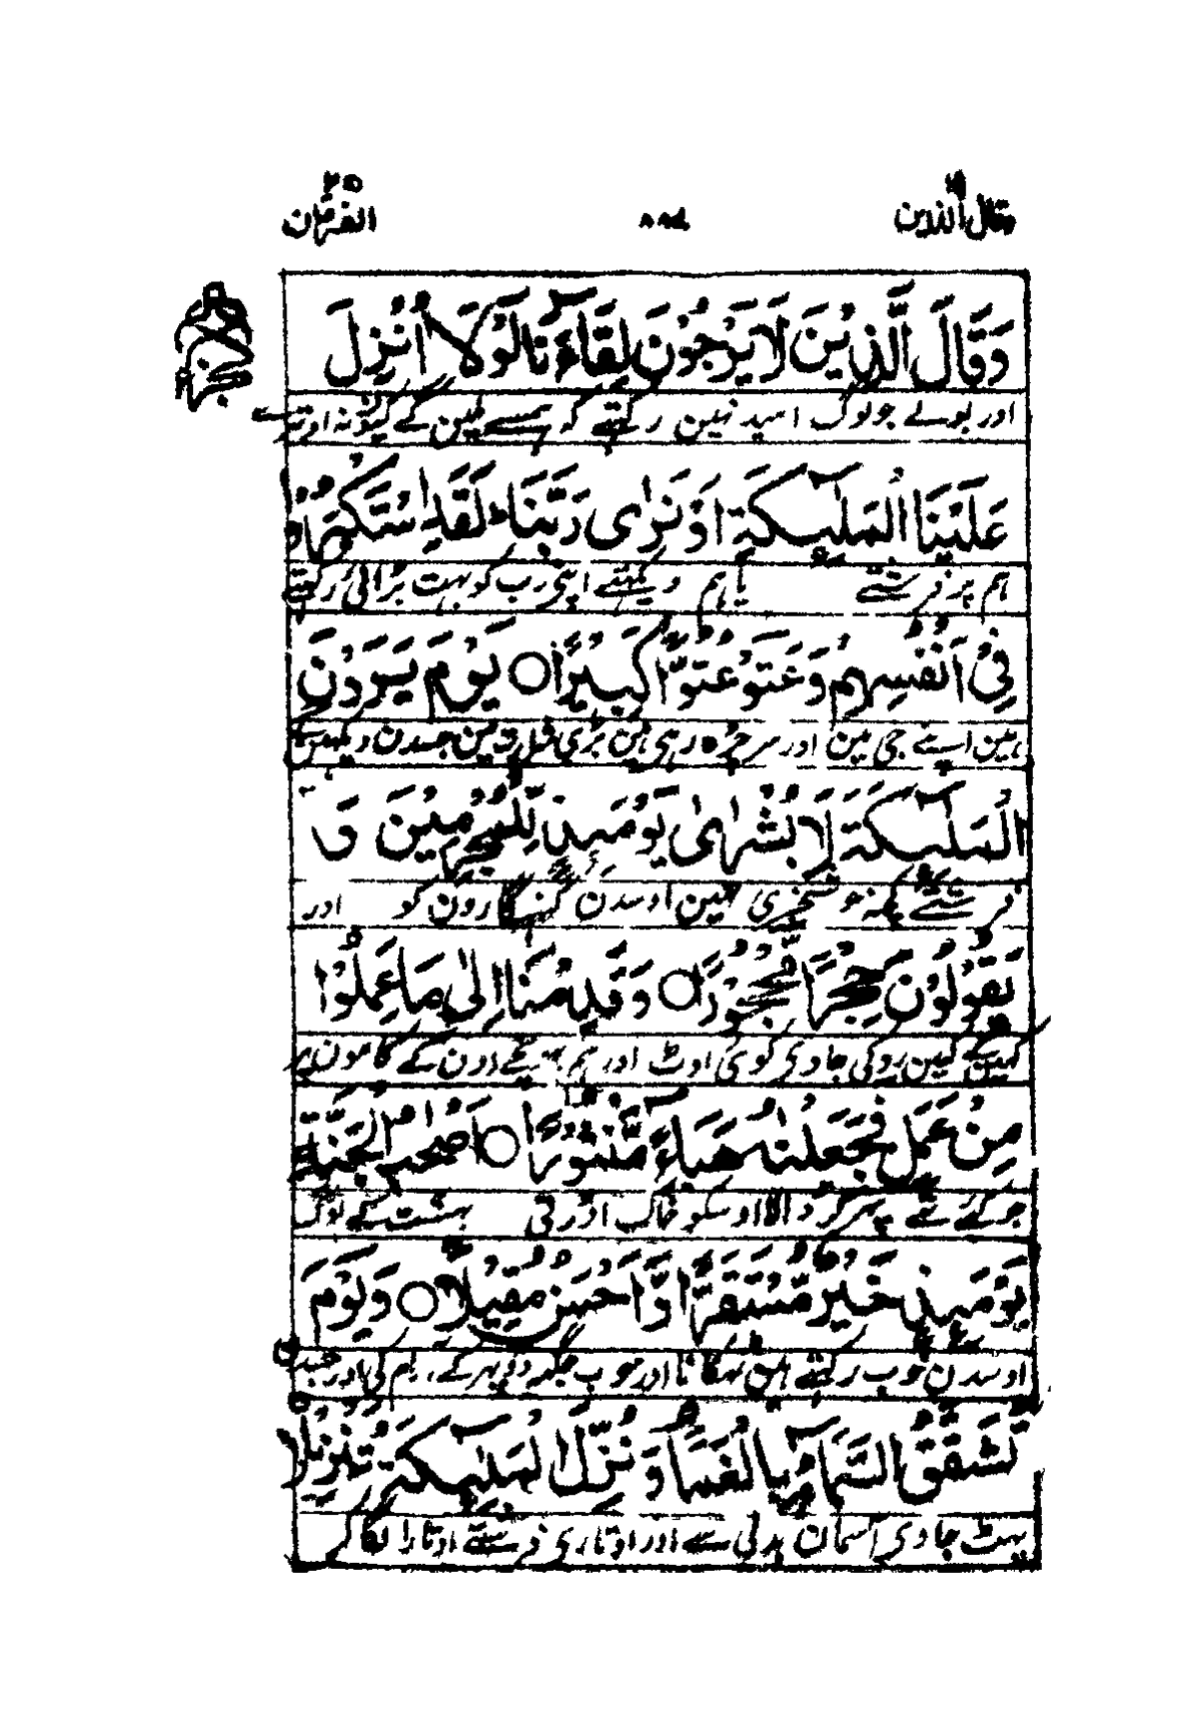 وقال الذين ١٩ ٨٨٤ الفرقان ٢٥
وَقَالَ الَّذِيْنَ لَا يَرْجُوْنَ لِقَآءَنَا لَوْلَا اُنْزِلَ
اور بولے جو لوگ امید نہین رکھتے کہ ہمسے ملین گے کیون نہ اوترے
عَلَيْنَا الْمَلٰٓئِكَةُ اَوْ نَرٰى رَبَّنَا ؕ لَقَدِ اسْتَكْبَرُوْا
ہم پر فرشتے یا ہم دیکھتے اپنی رب کو بہت بڑائی رکھتے
فِيْ اَنْفُسِهِمْ وَعَتَوْ عُتُوًّا كَبِيْرًا ○ يَوْمَ يَرَوْنَ
ہین اپنے جی مین اور سر چڑہ رہی ہین بڑی شرارت مین جسدن دیکھین گے
الْمَلٰٓئِكَةَ لَا بُشْرٰى يَوْمَئِذٍ لِّلْمُجْرِمِيْنَ وَ
فرشتے کچھ خوشخبری نہین اوسدن گنہگارون کو اور
يَقُوْلُوْنَ حِجْرًا مَّحْجُوْرًا ○ وَقَدِمْنَا اِلٰى مَا عَمِلُوْا
کہین گے کہین روکی جاوی کوئی اوٹ اور ہم پہنچے اون کے کامون پر
مِنْ عَمَلٍ فَجَعَلْنٰهُ هَبَآءً مَّنْثُوْرًا ○ اَصْحٰبُ الْجَنَّةِ
جو کئے تھے پھر کر ڈالا اوسکو خاک اوڑتی بہشت کے لوگ
يَوْمَئِذٍ خَيْرٌ مُّسْتَقَرًّا وَّاَحْسَنُ مَقِيْلًا ○ وَيَوْمَ
اوسدن خوب رکھتے ہین ٹھکانا اور خوب جگہ دوپہر کے آرام کی اور جسدن
تَشَقَّقُ السَّمَآءُ بِالْغَمَامِ وَ نُزِّلَ الْمَلٰٓئِكَةُ تَنْزِيْلًا
پھٹ جاوی آسمان بدلی سے اور اوتاری فرشتے اوتارا لگا کر